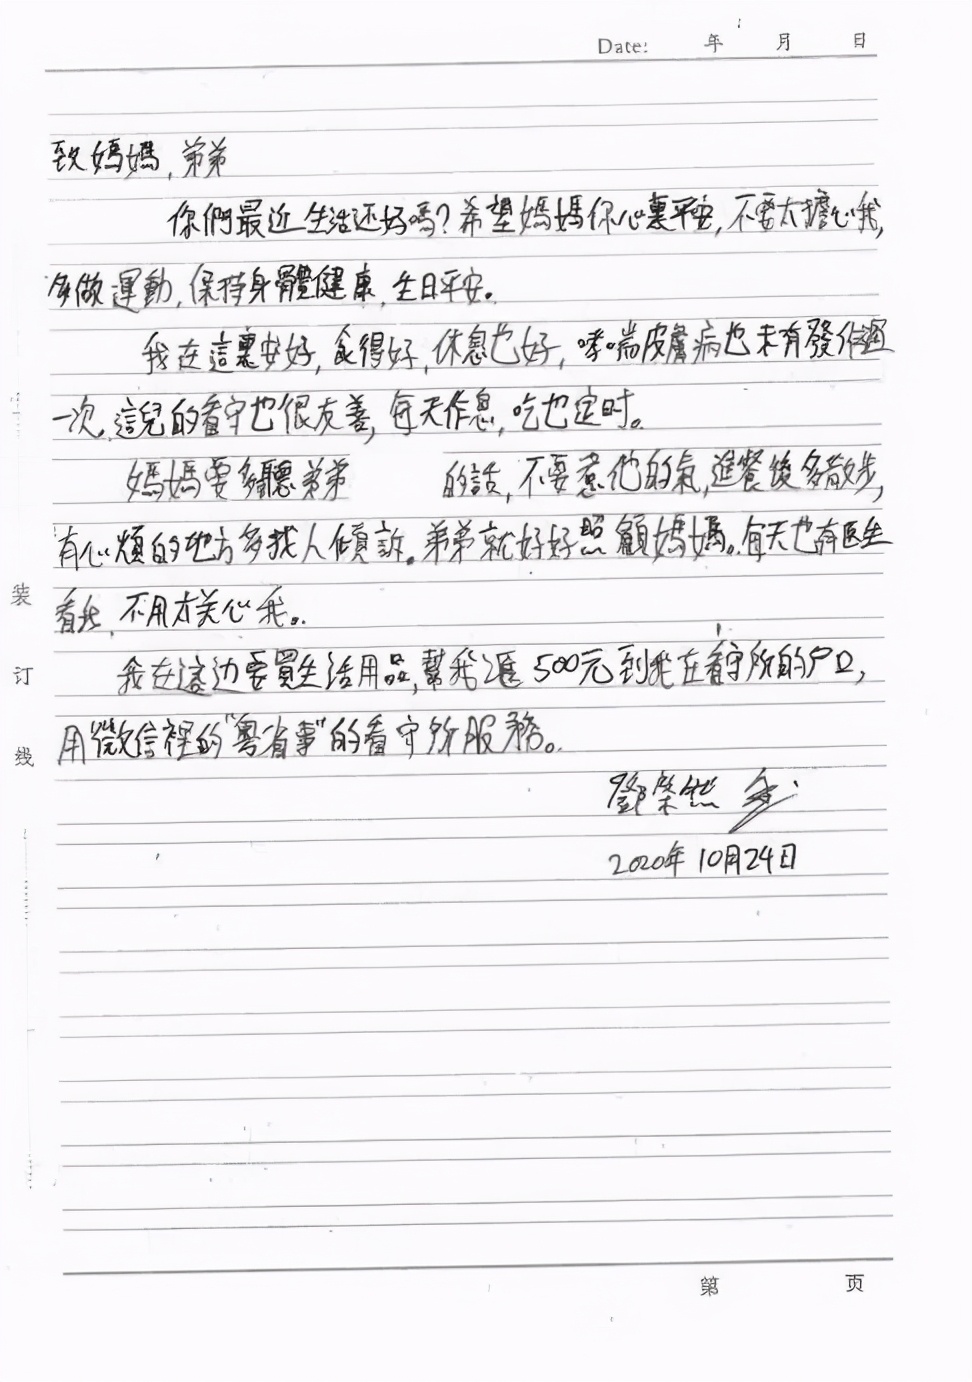 Date: 年 月 日
致媽媽,弟弟
你們最近生活还好嗎?希望媽媽你心裏平安,不要太擔心我,
多做運動,保持身體健康,生日平安。
我在這裏安好,食得好,休息也好,哮喘皮膚病也未有發作過
一次,這兒的看守也很友善,每天作息,吃也定时。
媽媽要多聽弟弟 的話,不要惹他的氣,進餐後多散步,
有心煩的地方多找人傾訴。弟弟就好好照顧媽媽。每天也有医生
看我,不用太关心我。
我在這边要買生活用品,幫我滙500元到我在看守所的户口,
用微信裡的"粤省事"的看守所服務。
鄧棨然
2020年10月24日
装
订
线
第 页